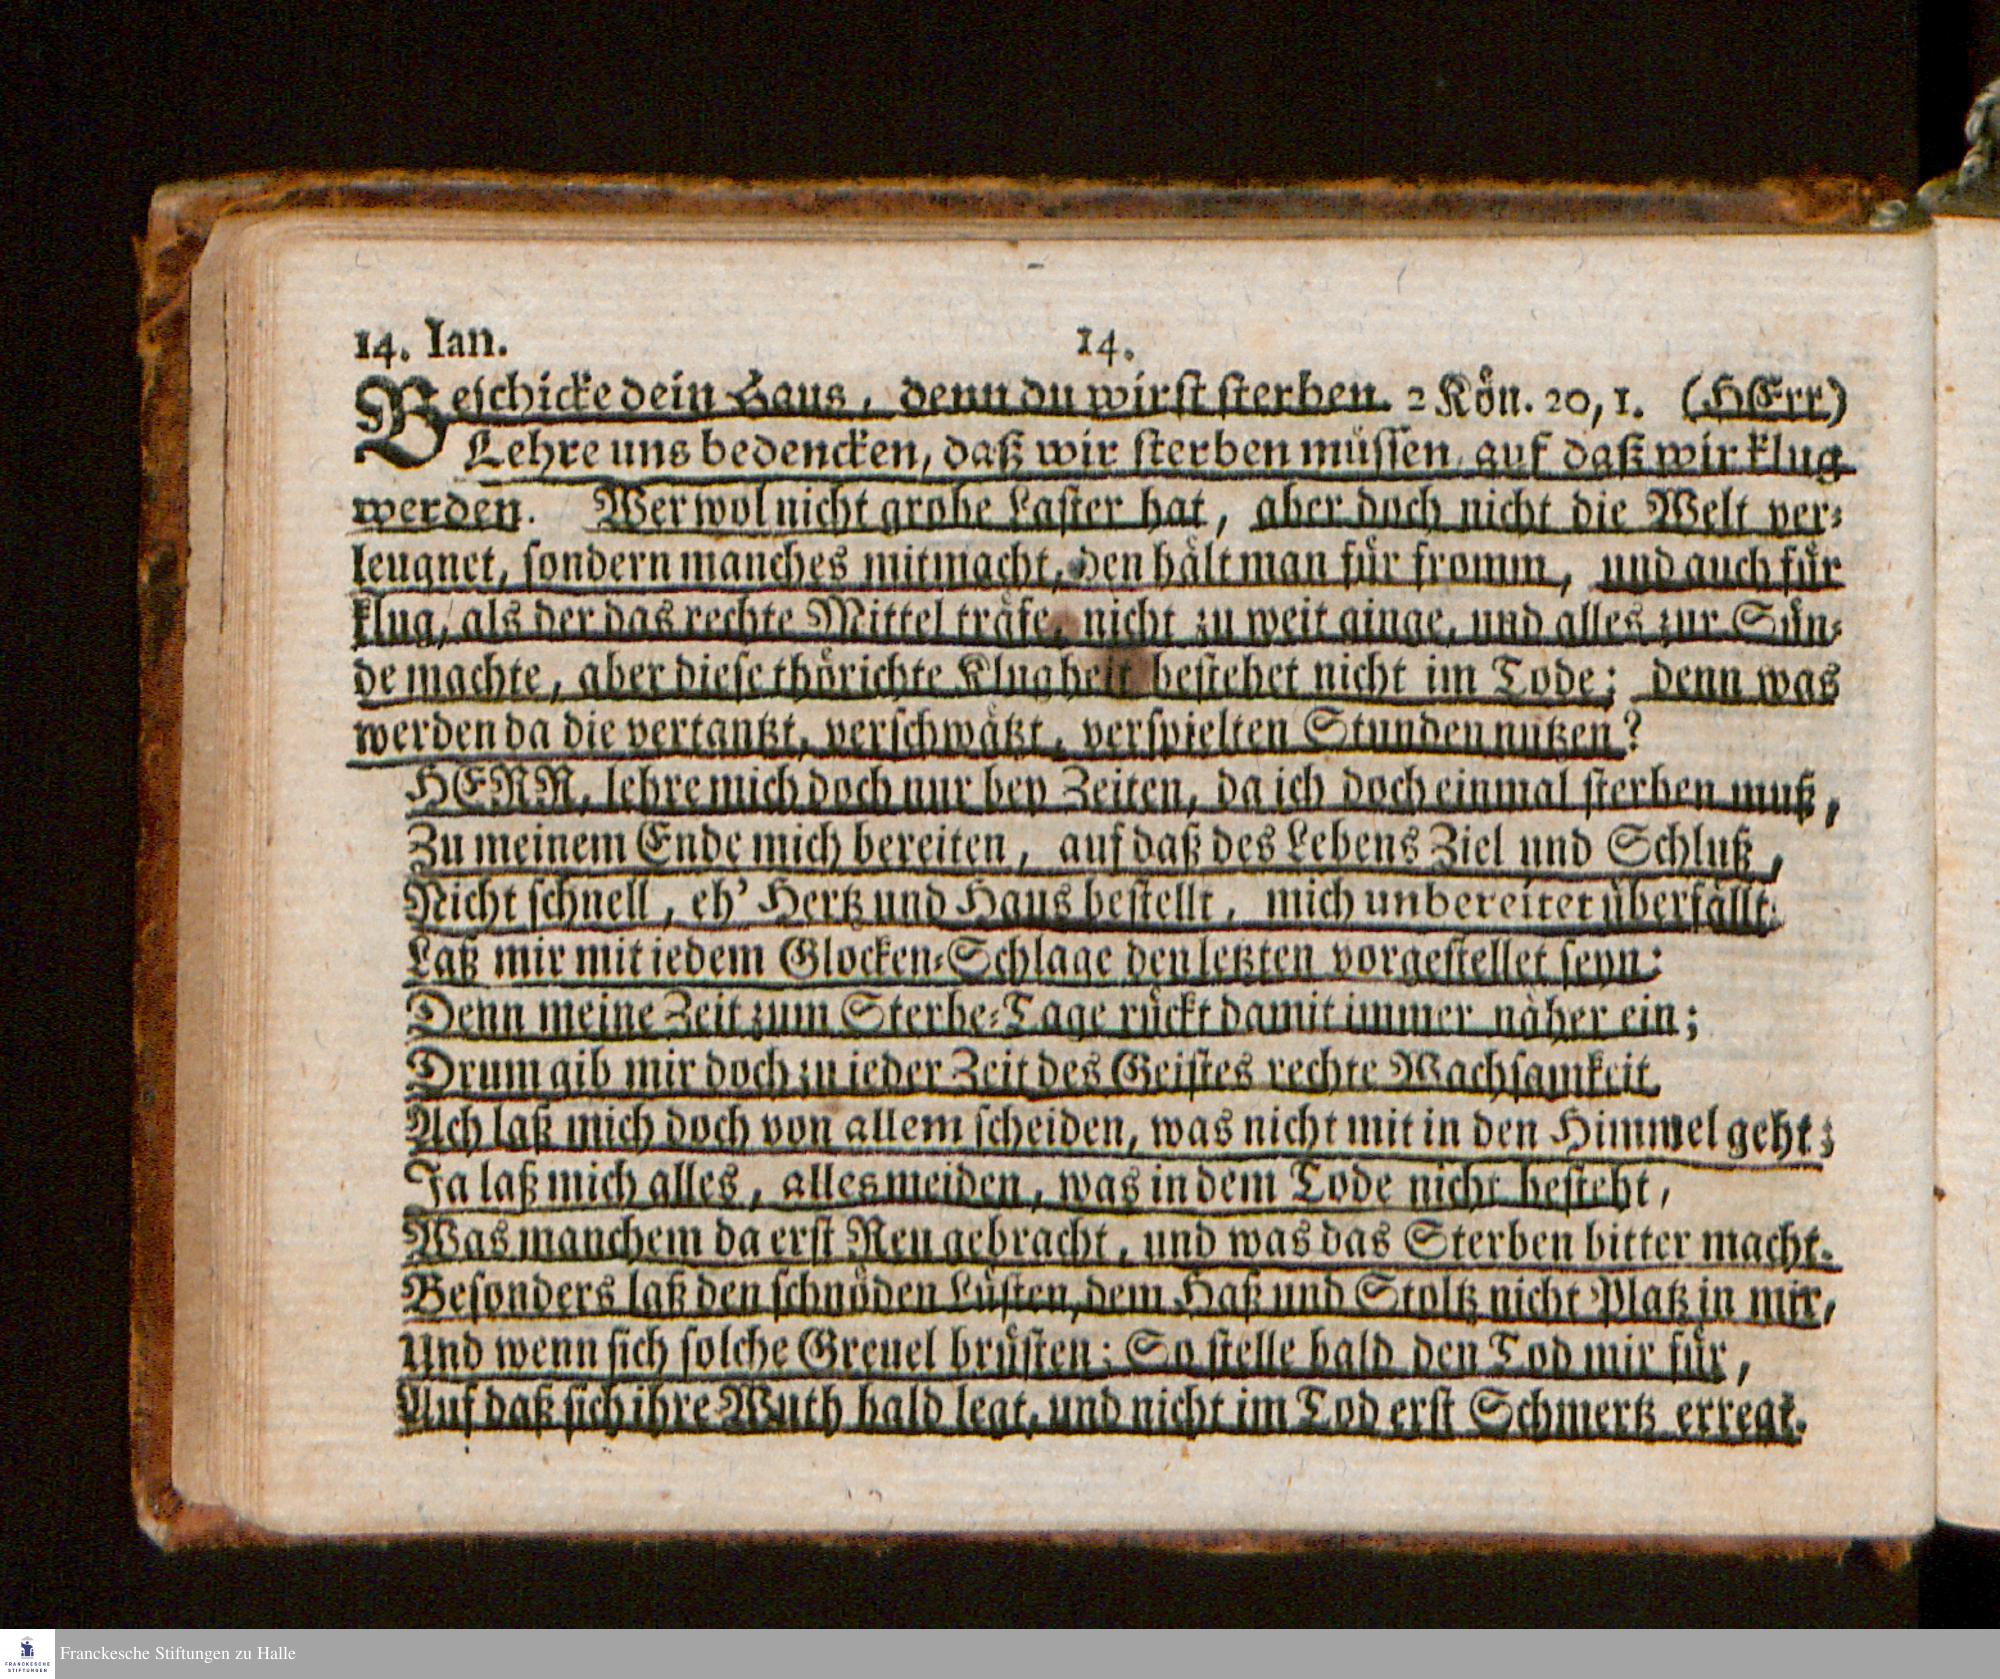 14. Ian. 14.
Beſchicke dein Haus, denn du wirſt ſterben. 2 Kön. 20, 1. (HErr)
Lehre uns bedencken, daß wir ſterben müſſen, auf daß wir klug
werden. Wer wol nicht grobe Laſter hat, aber doch nicht die Welt ver-
leugnet, ſondern manches mitmacht, den hält man für fromm, und auch für
klug, als der das rechte Mittel träfe, nicht zu weit ginge, und alles zur Sün-
de machte, aber dieſe thörichte Klugheit beſtehet nicht im Tode; denn was
werden da die vertantzt, verſchwätzt, verſpielten Stunden nutzen?
HERR, lehre mich doch nur bey Zeiten, da ich doch einmal ſterben muß,
Zu meinem Ende mich bereiten, auf daß des Lebens Ziel und Schluß,
Nicht ſchnell, eh' Hertz und Haus beſtellt, mich unbereitet überfällt.
Laß mir mit iedem Glocken-Schlage den letzten vorgeſtellet ſeyn:
Denn meine Zeit zum Sterbe-Tage rückt damit immer näher ein;
Drum gib mir doch zu ieder Zeit des Geiſtes rechte Wachſamkeit
Ach laß mich doch von allem ſcheiden, was nicht mit in den Himmel geht;
Ja laß mich alles, alles meiden, was in dem Tode nicht beſteht,
Was manchem da erſt Reu gebracht, und was das Sterben bitter macht.
Beſonders laß den ſchnöden Lüſten, dem Haß und Stoltz nicht Platz in mir,
Und wenn ſich ſolche Greuel brüſten: So ſtelle bald den Tod mir für,
Auf daß ſich ihre Wuth bald legt, und nicht im Tod erſt Schmertz erregt.
FRANCKESCHE
STIFTUNGEN
Franckesche Stiftungen zu Halle